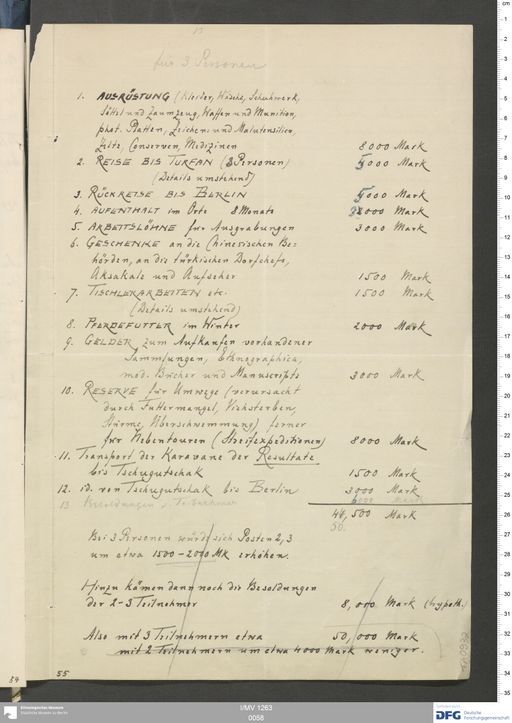 für 3 Personen
1. AUSRÜSTUNG (Kleider, Wäsche, Schuhwerk,
Sättel und Zaumzeug, Waffen und Munition,
phot. Platten, Zeichen- und Malutensilien
Zelte, Conserven, Medizinen 8000 Mark
2. REISE BIS TURFAN (3 Personen) 5000 Mark
(Details umstehend)
3. RÜCKREISE BIS BERLIN 5000 Mark
4. AUFENTHALT im Orte 8 Monate 000 Mark
5. ARBEITSLÖHNE für Ausgrabungen 3000 Mark
6. GESCHENKE an die Chinesischen Be-
hörden, an die türkischen Dorfchefs,
Aksakale und Aufseher 1500 Mark
7. TISCHLERARBEITEN etc. 1500 Mark
(Details umstehend)
8. PFERDEFUTTER im Winter 2000 Mark
9. GELDER zum Aufkaufen vorhandener
Sammlungen, Ethnographica,
mod. Bücher und Manuscripts 3000 Mark
10. RESERVE für Umwege (verursacht
durch Futtermangel, Viehsterben,
Stürme, Überschwemmung) ferner
für Nebentouren (Streifexpeditionen) 8000 Mark
11. Transport der Karavane der Resultate
bis Tschugutschak 1500 Mark
12. id. von Tschugutschak bis Berlin 3000 Mark
13 Besoldungen d. Teilnehmer 6000 Mark
46,500 Mark
50.
Bei 3 Personen würde sich Posten 2,3
um etwa 1500-2000 MK erhöhen.
Hinzu kämen dann noch die Besoldungen
der 2-3 Teilnehmer 8,000 Mark (hypoth.)
Also mit 3 Teilnehmern etwa 50,000 Mark
mit 2 Teilnehmern um etwa 4000 Mark weniger.
54
55
Ethnologisches Museum
Staatliche Museen zu Berlin
I/MV 1263
0058
Gefördert durch
DFG Deutsche
Forschungsgemeinschaft